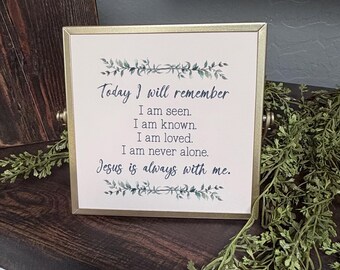 Today I will remember
I am seen.
I am known.
I am loved.
I am never alone.
Jesus is always with me.